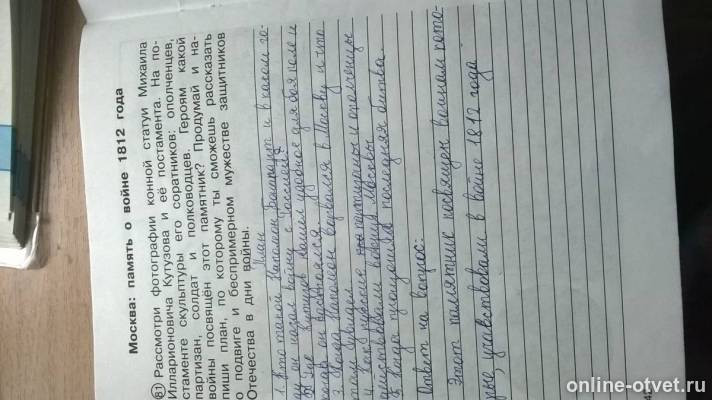 Москва: память о войне 1812 года
81 Рассмотри фотографии конной статуи Михаила
Илларионовича Кутузова и её постамента. На по-
стаменте скульптуры его соратников: ополченцев,
партизан, солдат и полководцев. Героям какой
войны посвящён этот памятник? Продумай и на-
пиши план, по которому ты сможешь рассказать
о подвиге и беспримерном мужестве защитников
Отечества в дни войны.
План
1. Кто такой Наполеон Бонапарт и в каком го-
ду он начал войну с Россией?
2) Где Кутузов нашел удобное для боя поле и
когда он состоялся.
3. Когда Наполеон ворвался в Москву и что
там увидел
4. Как русские партизаны и ополченцы
действовали вокруг Москвы
5. Когда произошла последняя битва.
Ответ на вопрос:
Этот памятник посвящен воинам кото-
рые, учавствовали в войне 1812 года
online-otvet.ru